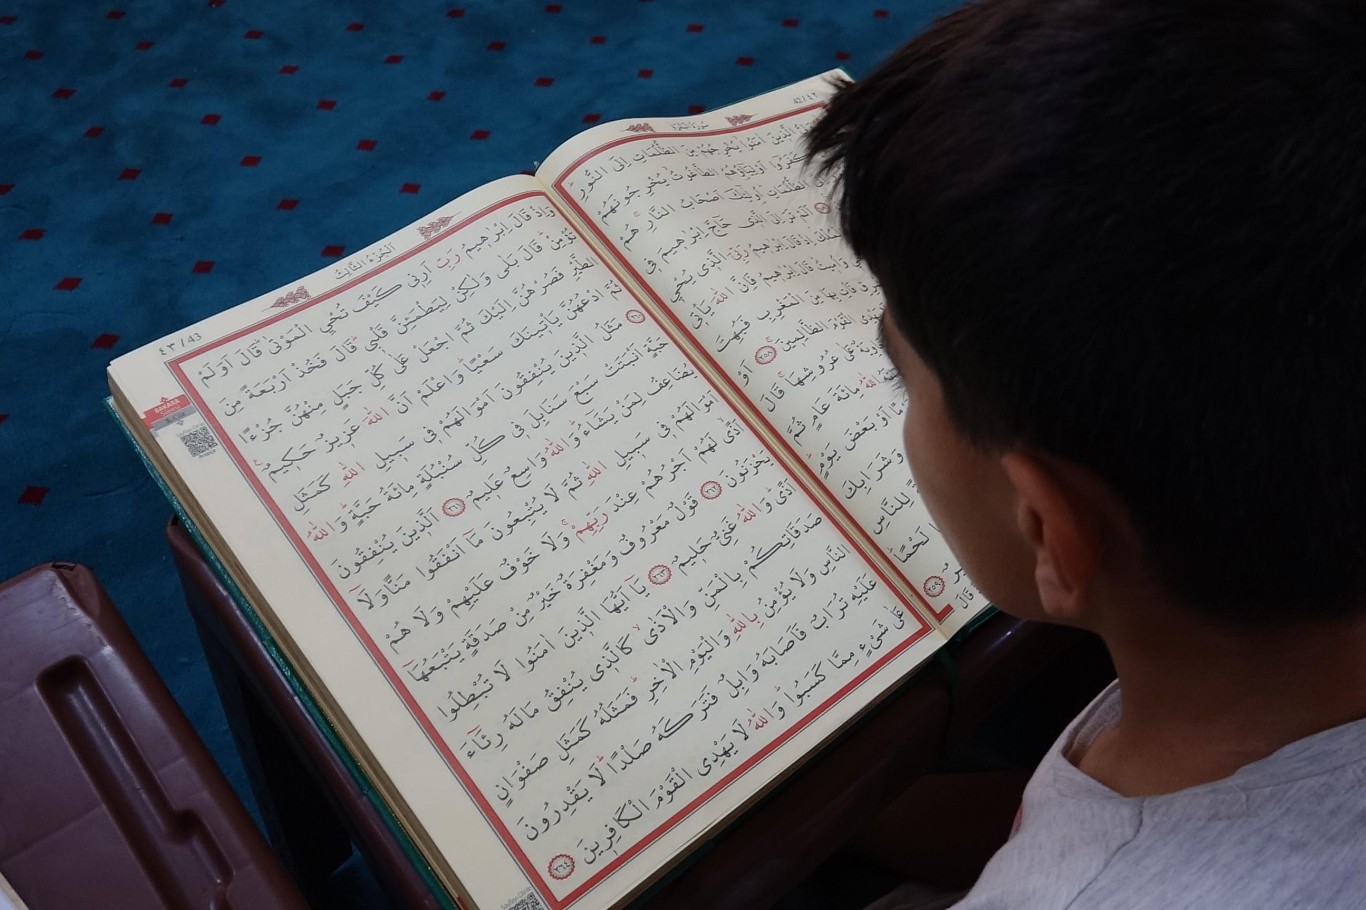 42/٤٢
سورة البقرة
الَّذِينَ اٰمَنُوا يُخْرِجُهُمْ مِنَ الظُّلُمَاتِ اِلَى النُّورِ
كَفَرُوا اَوْلِيَاؤُهُمُ الطَّاغُوتُ يُخْرِجُونَهُمْ
الظُّلُمَاتِ اُولٰئِكَ اَصْحَابُ النَّارِ هُمْ
اَلَمْ تَرَ اِلَى الَّذِى حَاجَّ اِبْرٰهِيمَ فِى
اِذْ قَالَ اِبْرٰهِيمُ رَبِّىَ الَّذِى يُحْيِى
وَاُمِيتُ قَالَ اِبْرٰهِيمُ فَاِنَّ اللّٰهَ يَأْتِى
فَأْتِ بِهَا مِنَ الْمَغْرِبِ فَبُهِتَ
الْقَوْمَ الظَّالِمِينَ ٢٥٨ اَوْ
عَلٰى عُرُوشِهَا قَالَ
اللّٰهُ مِائَةَ عَامٍ ثُمَّ
اَوْ بَعْضَ يَوْمٍ
وَشَرَابِكَ
لِلنَّاسِ
لَحْمًا
٢٥٩ قَالَ
اَلْجُزْءُ الثَّالِثُ
٤٣/43
وَاِذْ قَالَ اِبْرٰهِيمُ رَبِّ اَرِنِى كَيْفَ تُحْيِ الْمَوْتٰى قَالَ اَوَلَمْ
تُؤْمِنْ قَالَ بَلٰى وَلٰكِنْ لِيَطْمَئِنَّ قَلْبِى قَالَ فَخُذْ اَرْبَعَةً مِنَ
الطَّيْرِ فَصُرْهُنَّ اِلَيْكَ ثُمَّ اجْعَلْ عَلٰى كُلِّ جَبَلٍ مِنْهُنَّ جُزْءًا
ثُمَّ ادْعُهُنَّ يَأْتِينَكَ سَعْيًا وَاعْلَمْ اَنَّ اللّٰهَ عَزِيزٌ حَكِيمٌ
٢٦٠ مَثَلُ الَّذِينَ يُنْفِقُونَ اَمْوَالَهُمْ فِى سَبِيلِ اللّٰهِ كَمَثَلِ
حَبَّةٍ اَنْبَتَتْ سَبْعَ سَنَابِلَ فِى كُلِّ سُنْبُلَةٍ مِائَةُ حَبَّةٍ وَاللّٰهُ
يُضَاعِفُ لِمَنْ يَشَاءُ وَاللّٰهُ وَاسِعٌ عَلِيمٌ ٢٦١ اَلَّذِينَ يُنْفِقُونَ
اَمْوَالَهُمْ فِى سَبِيلِ اللّٰهِ ثُمَّ لَا يُتْبِعُونَ مَا اَنْفَقُوا مَنًّا وَلَا
اَذًى لَهُمْ اَجْرُهُمْ عِنْدَ رَبِّهِمْ وَلَا خَوْفٌ عَلَيْهِمْ وَلَا هُمْ
يَحْزَنُونَ ٢٦٢ قَوْلٌ مَعْرُوفٌ وَمَغْفِرَةٌ خَيْرٌ مِنْ صَدَقَةٍ يَتْبَعُهَا
اَذًى وَاللّٰهُ غَنِىٌّ حَلِيمٌ ٢٦٣ يَا اَيُّهَا الَّذِينَ اٰمَنُوا لَا تُبْطِلُوا
صَدَقَاتِكُمْ بِالْمَنِّ وَالْاَذٰى كَالَّذِى يُنْفِقُ مَالَهُ رِئَاءَ
النَّاسِ وَلَا يُؤْمِنُ بِاللّٰهِ وَالْيَوْمِ الْاٰخِرِ فَمَثَلُهُ كَمَثَلِ صَفْوَانٍ
عَلَيْهِ تُرَابٌ فَاَصَابَهُ وَابِلٌ فَتَرَكَهُ صَلْدًا لَا يَقْدِرُونَ
عَلٰى شَىْءٍ مِمَّا كَسَبُوا وَاللّٰهُ لَا يَهْدِى الْقَوْمَ الْكَافِرِينَ ٢٦٤
BAKARA